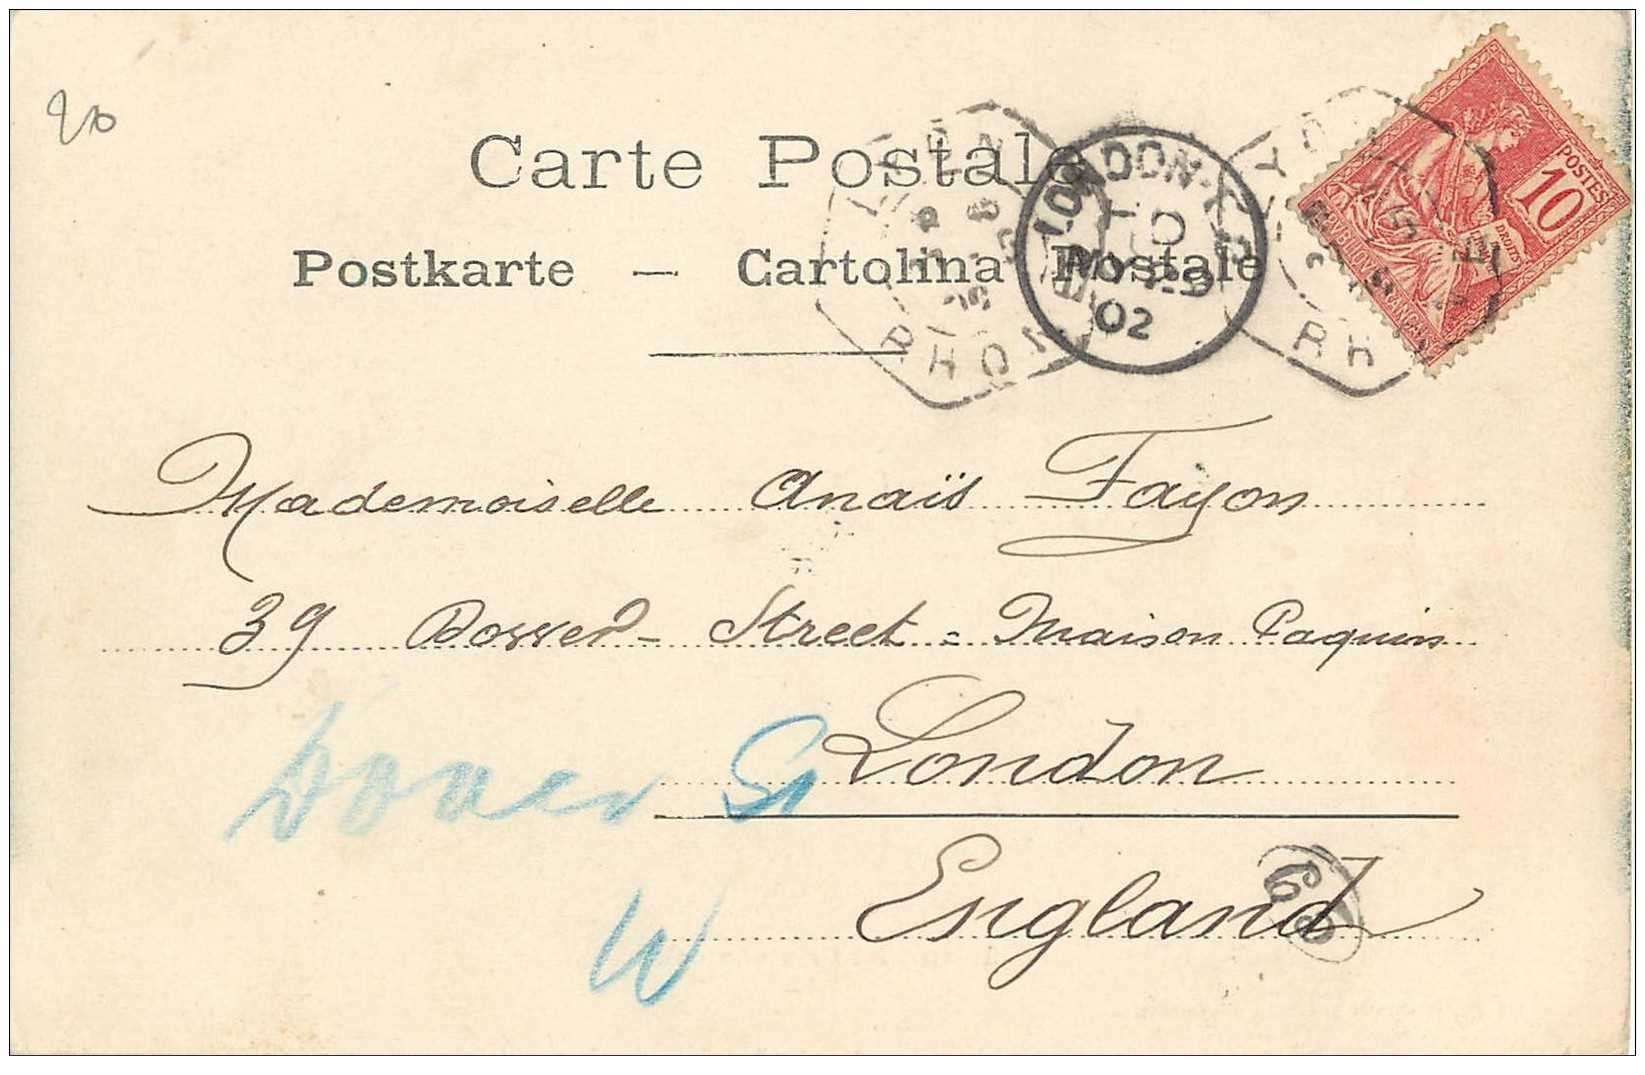 20
Carte Postale
Postkarte — Cartolina Postale
LYON
RHONE
LONDON
MY 9
02
LYON
RH
POSTES
10
DROITS
Mademoiselle Anaïs Fayon
39 Dosser - Street = Maison Paquin
London
England
Dover St
W